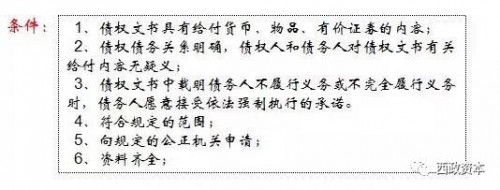 条件：
1、债权文书具有给付货币、物品、有价证券的内容；
2、债权债务关系明确，债权人和债务人对债权文书有关
给付内容无疑义；
3、债权文书中载明债务人不履行义务或不完全履行义务
时，债务人愿意接受依法强制执行的承诺。
4、符合规定的范围；
5、向规定的公正机关申请；
6、资料齐全；
西政资本